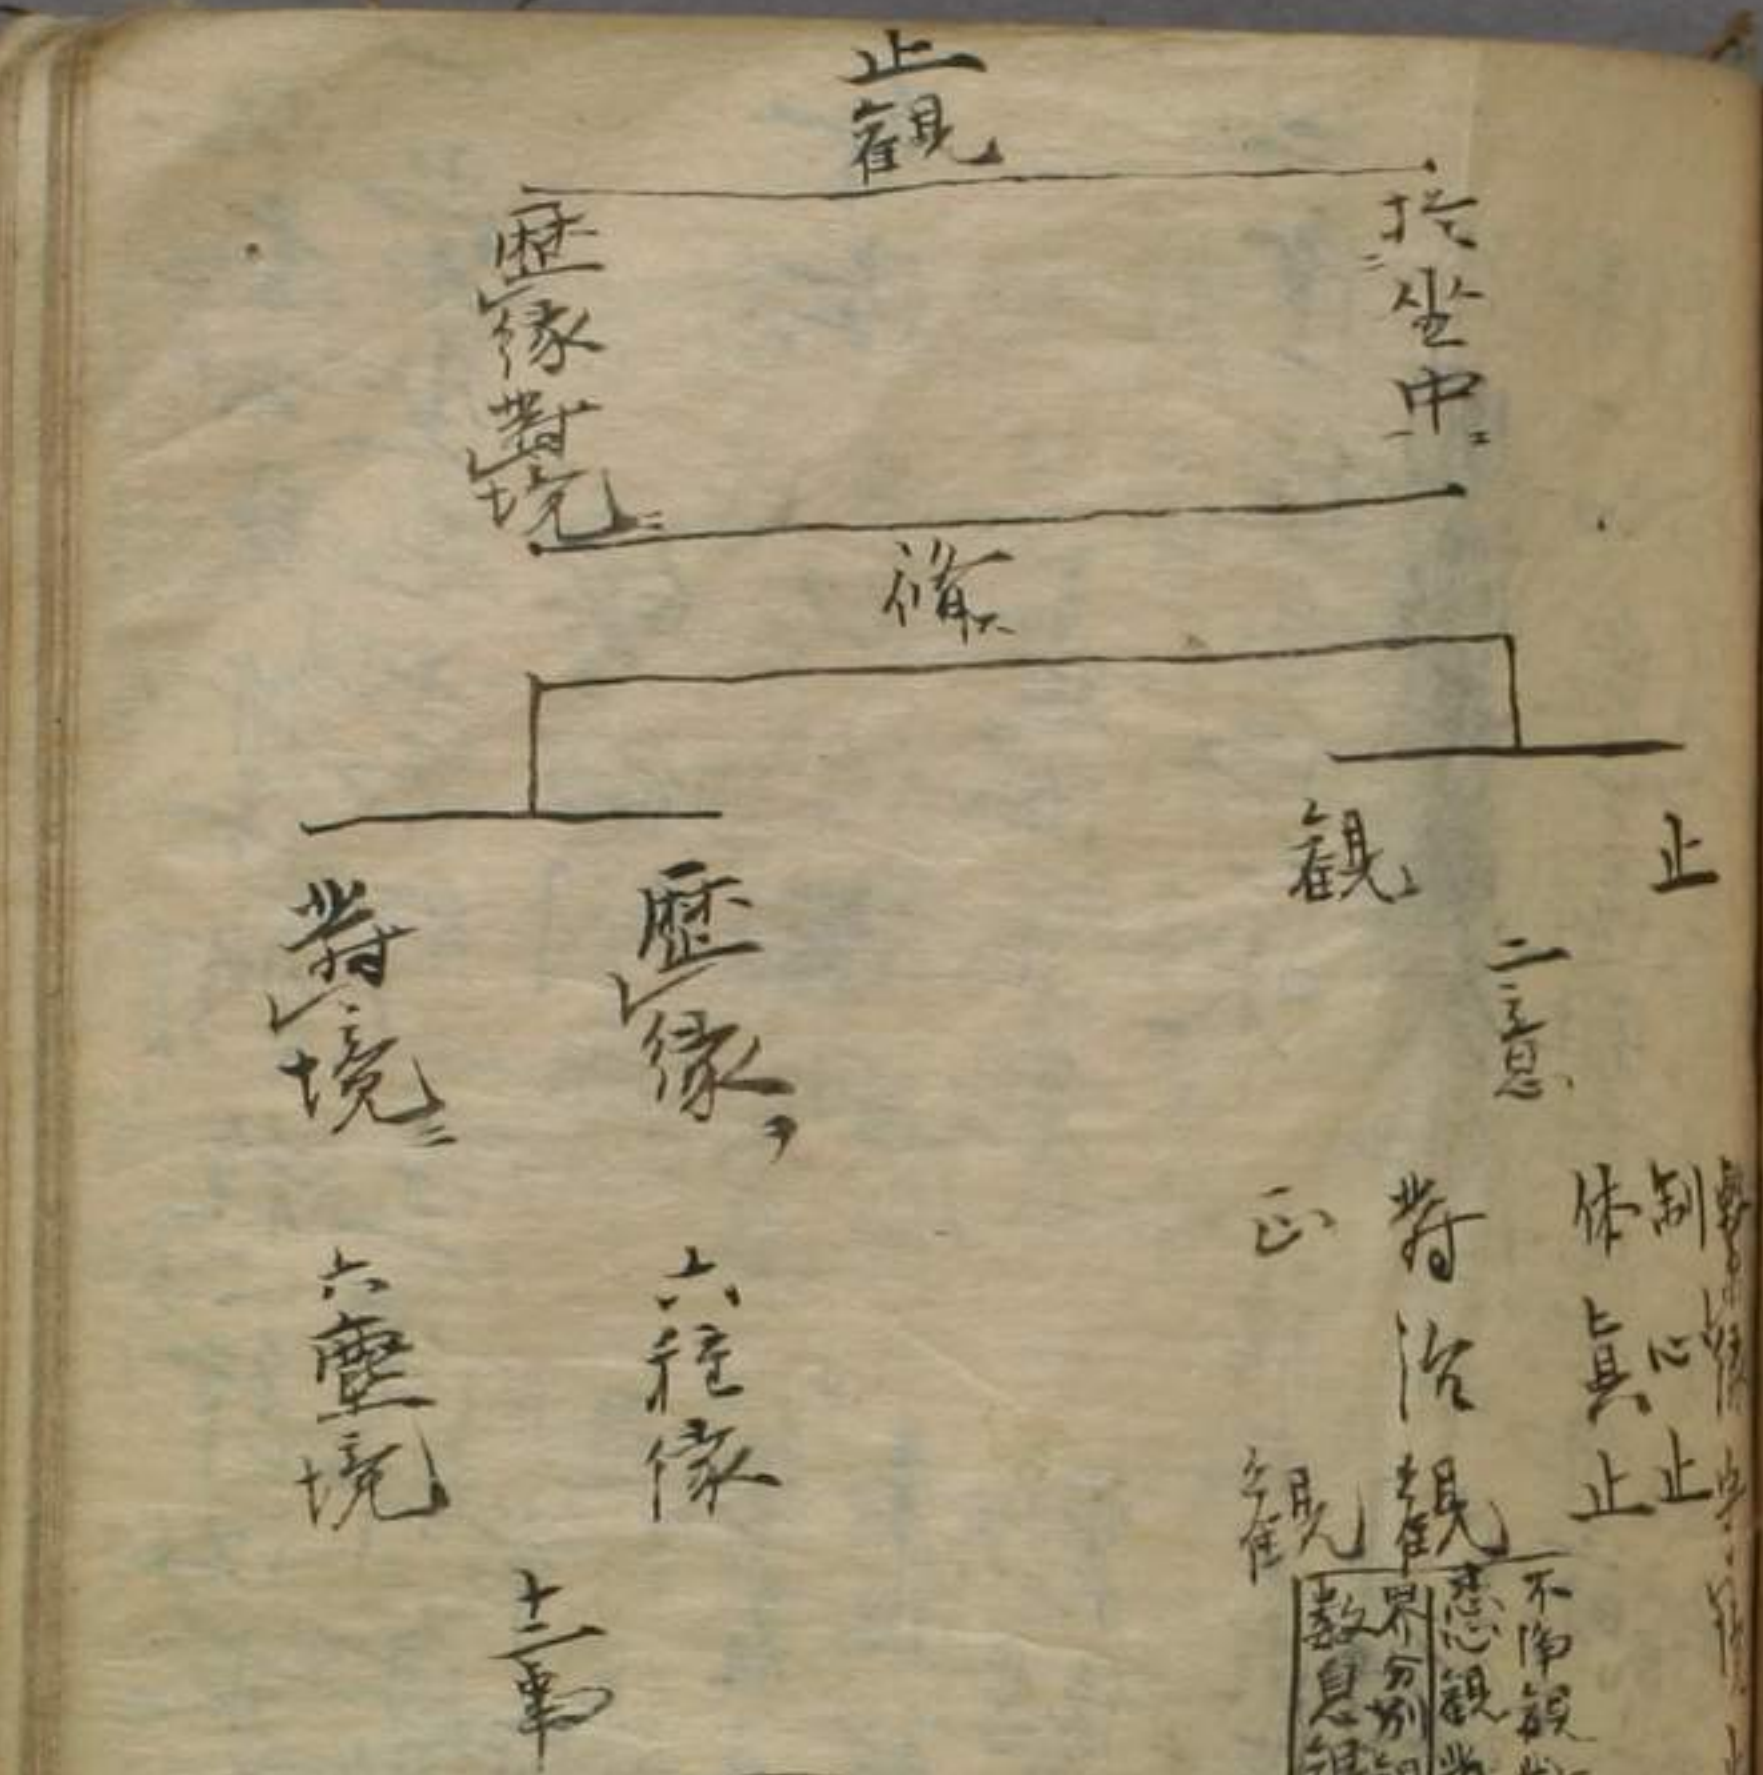 止觀
於坐中
歷緣對境
修
止
觀
二意
繫緣守
制心止
体真止
對治觀
正觀
不淨觀
慈心觀
界分別
數息觀
歷緣
對境
六種緣
六塵境
十二事